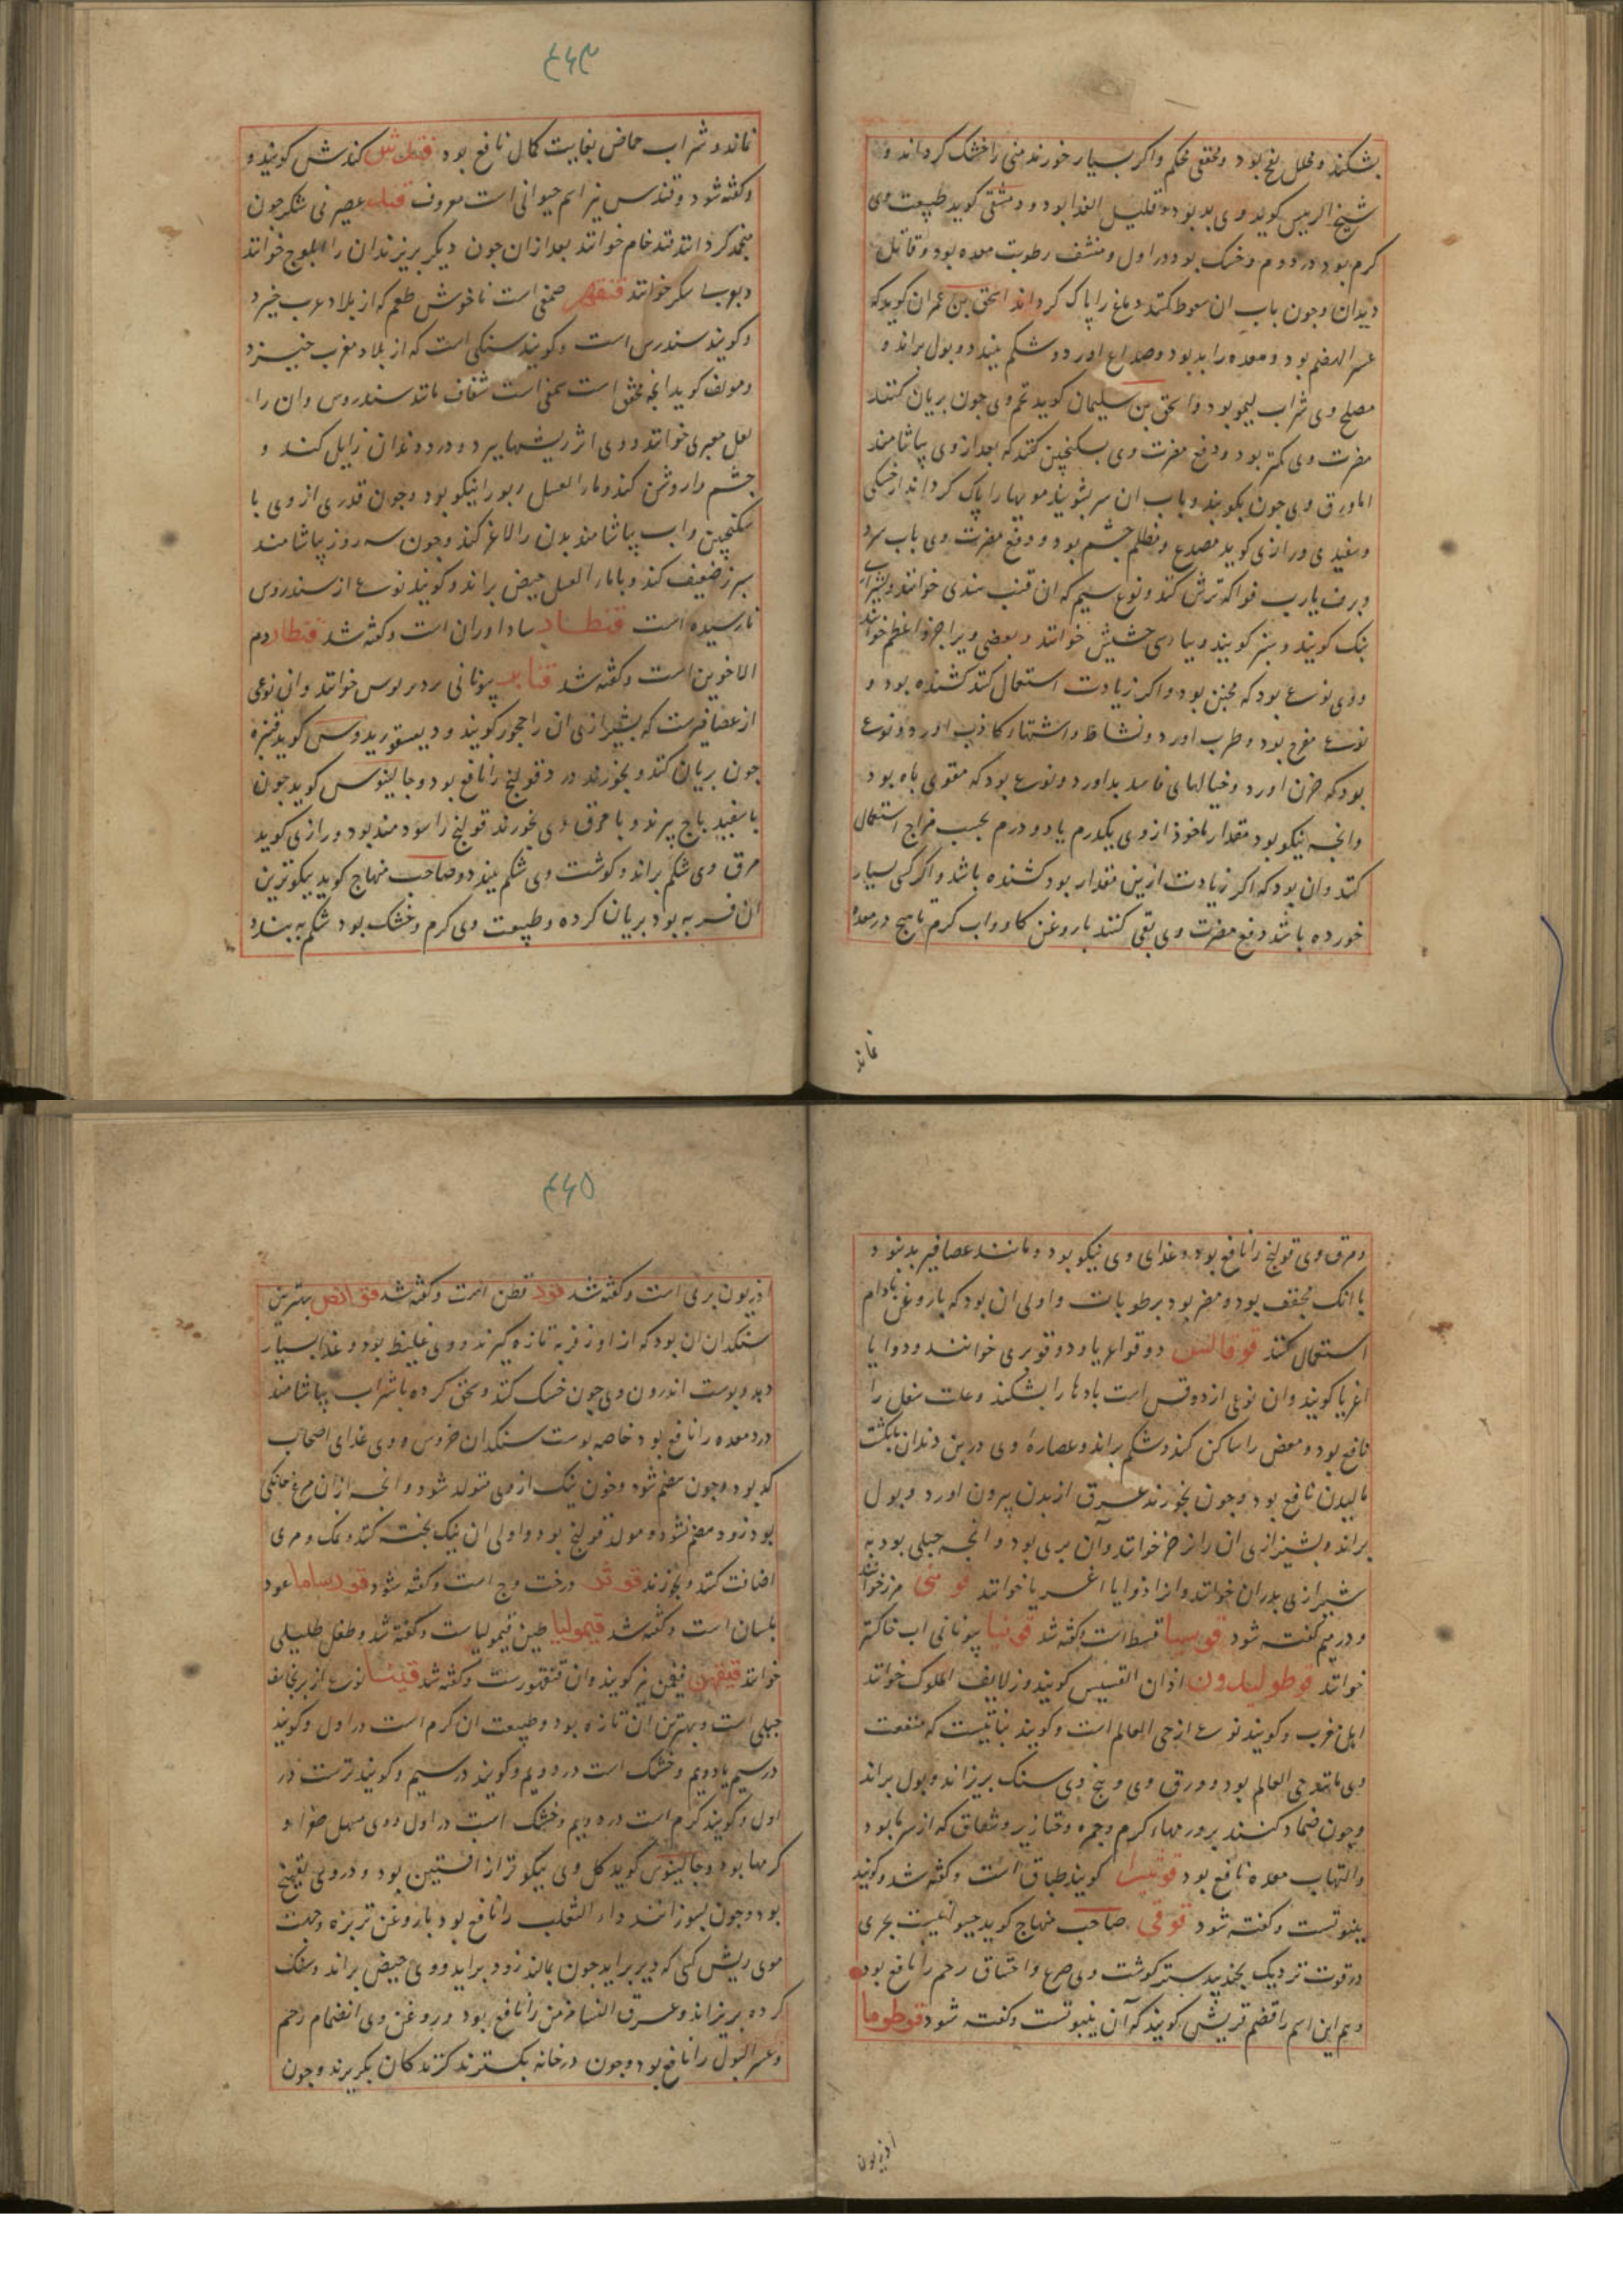 بشکند و محلل نفخ بود و مخفی محکم واکر بسیار خورند منی را خشک کرداند و
شیخ الریس کوید وی بد بود و قلیل الغذا بود و دمشقی کوید طبیعت وی
کرم بود در دوم و خشک بود در اول و منشف رطوبت معده بود و قاتل
دیدان و جون باب ان سعوط کنند دماغ را پاک کرداند اسحق بن عمران کوید که
عسر الهضم بود و معده را بد بود و صداع اورد و شکم ببندد و بول براند و
مصلح وی شراب لیمو بود و اسحق بن سلیمان کوید تخم وی جون بریان کنند
مضرت وی کمتر بود و دفع مضرت وی بسکنجبین کنند که بعد از وی بیاشامند
اما ورق وی جون بکوبند و باب ان سر بشویند مویها را پاک کرداند از خشکی
و سفیدی و رازی کوید مصدع و مظلم جشم بود و دفع مضرت وی باب سرد
و برف یا رب فواکه ترش کنند و نوع سیم که ان قنب هندی خوانند و بشیرازی
بنک کویند و سبز کویند و بپارسی حشیش خوانند و بعضی ویرا جزو اعظم خوانند
و وی نوعی بود که مجنن بود و اکر زیادت استعمال کنند کشنده بود و
نوعی مفرح بود و طرب اورد و نشاط و اشتهاء کاذب اورد و نوعی
بود که حزن اورد و خیالهای فاسد بداورد و نوعی بود که مقوی باه بود
وانجه نیکو بود مقدار ماخوذ از وی یکدرم یا دو درم بحسب مزاج استعمال
کنند وان بود که اکر زیادت ازین مقدار بود کشنده باشد و اکر کسی بسیار
خورده باشد دفع مضرت وی بقی کنند با روغن کاو واب کرم تا هیج در معده
نماند
۴۶۴
نماند و شراب حماض بغایت کمال نافع بود قندش کندش کویند و
و کفته شود و قندس نیز اسم حیوانی است معروف قند عصیر نی شکر جون
منجمد کردانند قند خام خوانند بعد از ان جون دیکر بریزند ان را ابلوج خوانند
و بوب سکر خوانند قنقهر صمغی است ناخوش طعم که از بلاد عرب خیزد
و کویند سندرس است و کویند سنکی است که از بلاد مغرب خیزد
و مولف کوید انجه محقق است صمغی است شفاف مانند سندروس وان را
لعل معبری خوانند و وی اثر ریشها ببرد و درد دندان زایل کند و
جشم را روشن کند و ماء العسل ربو را نیکو بود و جون قدری از وی با
سکنجبین واب بیاشامند بدن را لاغر کند و جون سه روز بیاشامند
سبرز ضعیف کند و با ماء العسل حیض براند و کویند نوعی از سندروس
نارسیده است قنطار ساداوران است و کفته شد قنطار دم
الاخوین است و کفته شد قنابر بیونانی خوانند وان نوعی
از عصافیرست که بشیرازی ان را جحور کویند و دیسقوریدوس کوید قنبره
جون بریان کنند و بخورند درد قولنج را نافع بود و جالینوس کوید جون
باسفیدباج بپزند و با مرق وی بخورند قولنج را سودمند بود و رازی کوید
مرق وی شکم براند و کوشت وی شکم ببندد و صاحب منهاج کوید نیکوترین
ان فربه بود بریان کرده و طبیعت وی کرم و خشک بود شکم به بندد
و مرق وی قولنج را نافع بود و غذای وی نیکو بود و مانند عصافیر بد نبود
با انک مجفف بود و مضر بود برطوبات و اولی ان بود که با روغن بادام
استعمال کنند قوقالس دوقوا یا دوقو بری خوانند و دوایا
اغریا کویند وان نوعی از دوقس است بادها را بشکند و علت سفل را
نافع بود و مغص را ساکن کند و شکم براند و عصارۀ وی در بن دندان بانکشت
مالیدن نافع بود و جون بخورند عرق از بدن بیرون اورد و بول
براند و بشیرازی ان را نرخر خوانند وآن بری بود و انجه جبلی بود به
شیرازی بدران خوانند و انرا ذوایا اغریا خوانند قومنی مرز خوانند
و در میم کفته شود قوسیا قسط است و کفته شد قونیا بیونانی اب خاکستر
خوانند قوطولیدون اذان القسیس کویند و زلایف الملوک خوانند
اهل مغرب و کویند نوعی از حی العالم است و کویند نباتیست که منفعت
وی مانند حی العالم بود و ورق وی و بیخ وی سنک بریزاند و بول براند
و جون ضماد کنند بر ورمهاء کرم و جمره و خنازیر و شقاق که از سرما بود
و التهاب معده نافع بود قوتیرا کویند طباق است و کفته شد و کویند
ینبوتست و کفته شود قوقی صاحب منهاج کوید حیوانیست بحری
در قوت نزدیک بجندبیدستر کوشت وی صرع و اختناق رحم را نافع بود
و هم این اسم را قضم قریش کویند که آن ینبوتست و کفته شود قوطوما
اذریون
۴۶۵
اذریون بری است و کفته شد قور قطن است و کفته شد قوانص بهترین
سنکدان ان بود که از اوز فربه تازه کیرند و وی غلیظ بود و غذا بسیار
دهد و پوست اندرون وی جون خشک کنند و سحق کرده با شراب بیاشامند
درد معده را نافع بود خاصه پوست سنکدان خروس و وی غذای اصحاب
کد بود و جون هضم شود و خون نیک از وی متولد شود و انجه از ان مرغ خانکی
بود زود هضم نشود و مولد قولنج بود و اولی ان نیک بخت کنند و نمک و مری
اضافت کنند و بخورند قوثر درخت وج است و کفته شود قورساما عود
بلسان است و کفته شد قیمولیا طین قیمولیاست و کفته شد و طفل طلیطلی
خوانند قیقهن قیقهن نیز کویند وان قنقهورست و کفته شد قیسا نوعی از برنجاسف
جبلی است و بهترین ان تازه بود و طبیعت ان کرم است در اول و کویند
در سیم یا دویم و خشک است در دویم و کویند در سیم و کویند ترست در
اول و کویند کرم است در دویم و خشک است در اول و وی مسهل صفرا و
کرمها بود و جالینوس کوید کل وی نیکوتر از افسنتین بود و در وی تفتیح
بود و جون بسوزانند داء الثعلب را نافع بود با روغن تربزه و جهت
موی ریش کسی که دیر براید جون بمالند زود براید و وی حیض براند و سنک
کرده بریزاند و عرق النسا مزمن را نافع بود و روغن وی انضمام رحم
و عسر البول را نافع بود و جون در خانه بکسترند کزندکان بکریزند و جون